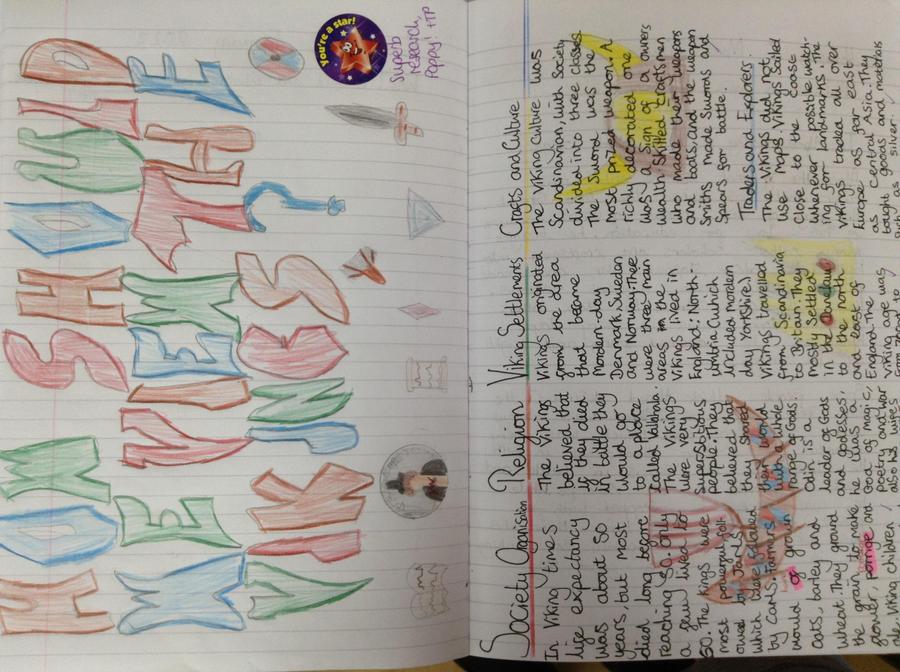 HOW SHOULD
WE VIEW THE
VIKINGS?
You're a star!
Superb
research,
Poppy! +TP
Society Organisation
In Viking times
life expectancy
was about 50
years, but most
died long before
reaching 50. only
a few lived to
60. The kings were
most powerful foll-
owed by Jarls
which were followed
by carls. Farmers
would grow grain
or
oats, barley and
wheat. They ground
the grain to make
flower, porrige and
ale. Viking children
Religion
The Viking
believed that
if they died
in battle they
would go
to a place
called Valhhala.
The Vikings
were very
superstitious
people. They
believed that
they shared
their world
with a whole
range of Gods.
Odin is a
leader of Gods
and godesses.
he was a
God of magic,
poetry and war
also his wifes
Viking Settlements
Vikings originated
from the area
that became
Mordern-day
Denmark, Sweden
and Norway. There
were three main
areas in the
Vikings lived in
England: North-
umbria (which
included mordern
day Yorkshire).
Vikings travelled
from Scandinavia
to Britain. They
mostly settled
in the Danelaw
to the north
and east of
England. The
Viking age was
from 700AD to
Crafts and Culture
The Viking Culture was
Scandinavian, with Society
divided into three classes
The Sword was the
most prized weapon. A
richly decorated one
was a sign of a owners
wealth. Skilled Crafts men
who made their weapons
and boats, and the weapon
Smiths made Swords and
Spears for battle.
Traders and Explorers
The Vikings did not
use maps. Vikings Sailed
close to the coast
whenever possible watch-
ing for landmarks. The
Vikings traded all over
Europe as far east
as central Asia. They
bought goods and materials
such as silver,